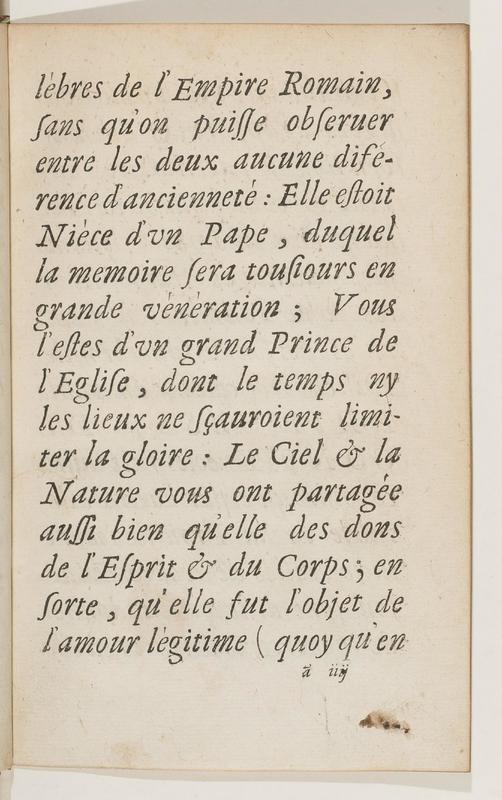 lèbres de l'Empire Romain,
ſans qu'on puiſſe obſeruer
entre les deux aucune difé-
rence d'ancienneté : Elle eſtoit
Niéce d'vn Pape , duquel
la memoire ſera touſiours en
grande vénération ; Vous
l'eſtes d'vn grand Prince de
l'Egliſe , dont le temps ny
les lieux ne ſçauroient limi-
ter la gloire : Le Ciel & la
Nature vous ont partagée
auſſi bien qu'elle des dons
de l'Eſprit & du Corps ; en
ſorte , qu'elle fut l'objet de
l'amour légitime ( quoy qu'en
ã iiij